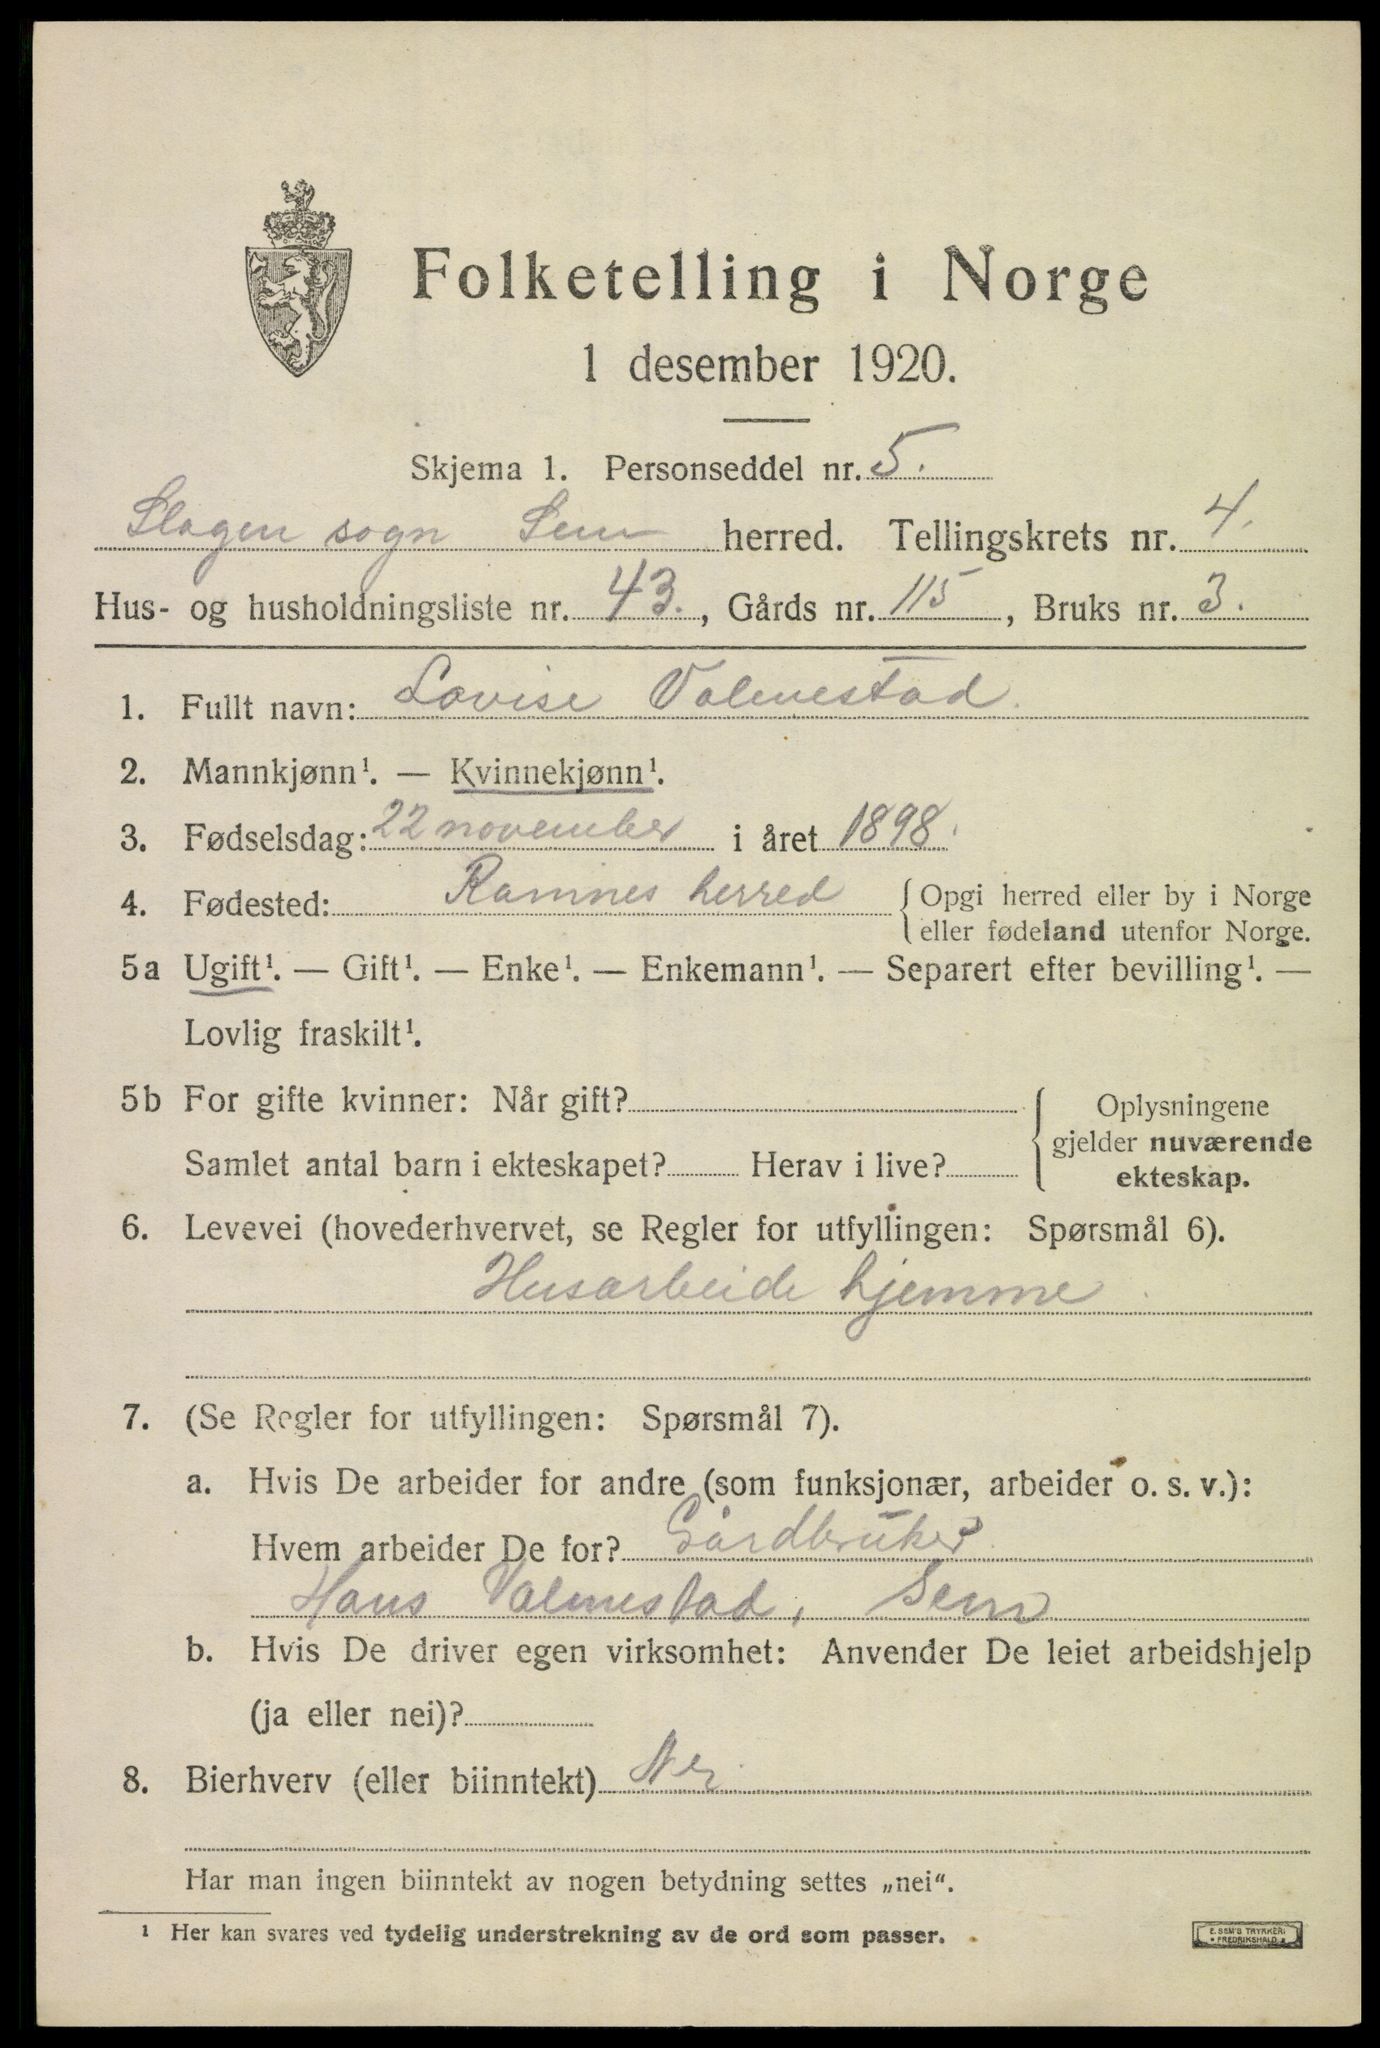 Folketelling i Norge
1 desember 1920.
Skjema 1. Personseddel nr. 5.
Slagen sogn Sem herred. Tellingskrets nr. 4.
Hus- og husholdningsliste nr. 43., Gårds nr. 115, Bruks nr. 3.
1. Fullt navn: Lovise Valmestad.
2. Mannkjønn¹. — Kvinnekjønn¹.
3. Fødselsdag: 22 november i året 1898.
4. Fødested: Ramnes herred { Opgi herred eller by i Norge
eller fødeland utenfor Norge.
5a Ugift¹. — Gift¹. — Enke¹. — Enkemann¹. — Separert efter bevilling¹. —
Lovlig fraskilt¹.
5b For gifte kvinner: Når gift?
Samlet antal barn i ekteskapet? Herav i live?
Oplysningene
gjelder nuværende
ekteskap.
6. Levevei (hovederhvervet, se Regler for utfyllingen: Spørsmål 6).
Husarbeide hjemme
7. (Se Regler for utfyllingen: Spørsmål 7).
a. Hvis De arbeider for andre (som funksjonær, arbeider o. s. v.):
Hvem arbeider De for? Gårdbruker
Hans Valmestad, Sem
b. Hvis De driver egen virksomhet: Anvender De leiet arbeidshjelp
(ja eller nei)?
8. Bierhverv (eller biinntekt) Nei
Har man ingen biinntekt av nogen betydning settes „nei“.
¹ Her kan svares ved tydelig understrekning av de ord som passer.
E. SEM'S TRYKKERI
FREDRIKSHALD